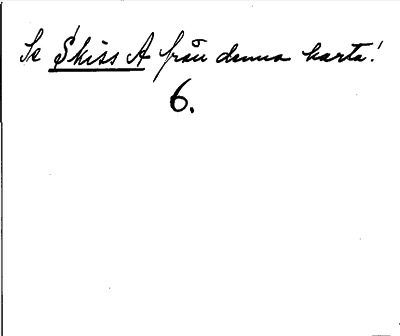 Se Skiss A från denna karta!
6.